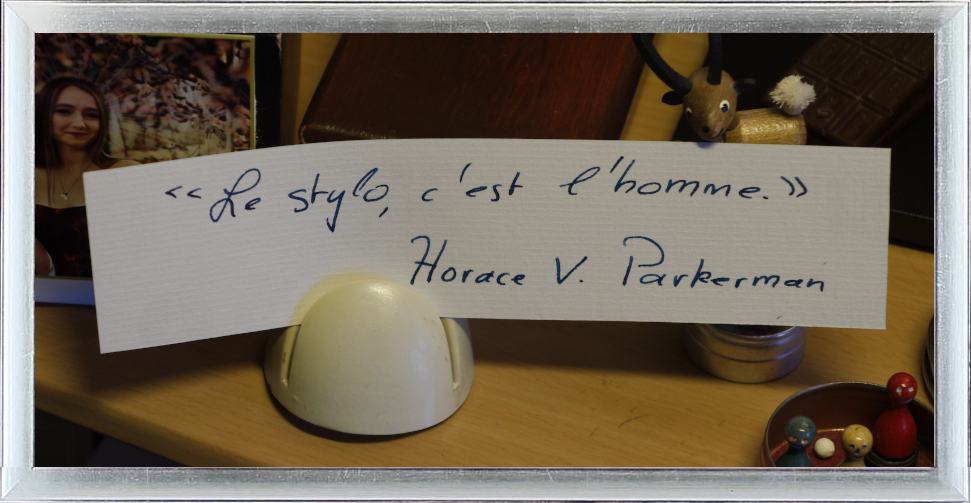 «Le stylo, c'est l'homme.»
Horace V. Parkerman